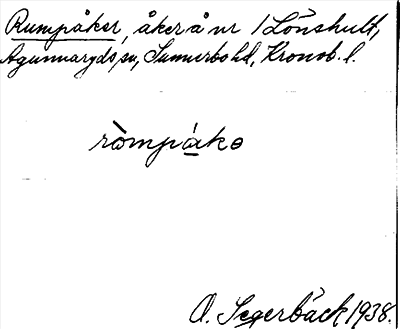 Rumpåker, åker å nr 1 Lönshult,
Agunnaryds, sn, Sunnerbo hd, Kronob. l.
ròmpákə
O. Segerbäck 1938.